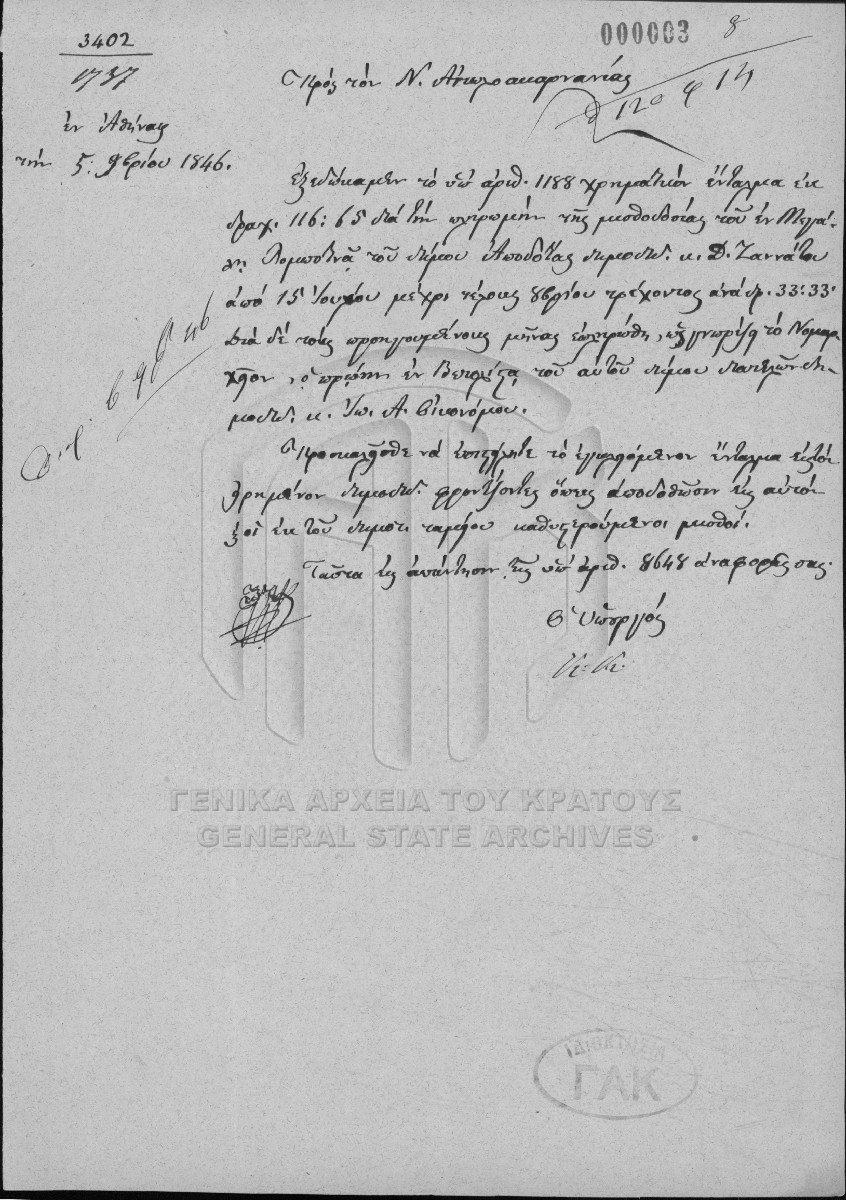 000003
8
3402
1737
Πρὸς τὸν Ν. Αἰτωλοακαρνανίας
120 φ 14
ἐν Ἀθήναις
τὴν 5: 9βρίου 1846.
Ἐξεδώκαμεν τὸ ὑπ' ἀριθ. 1188 χρηματικὸν ἔνταλμα ἐκ
δραχ. 116: 65 διὰ τὴν πληρωμὴν τῆς μισθοδοσίας τοῦ ἐν Μεγά-
λῃ Λομποτινᾷ τοῦ δήμου Ἀποδοτίας δημοδιδ. κ. Δ. Ζαννάτου
ἀπὸ 15 Ἰουλίου μέχρι τέλους 8βρίου τρέχοντος ἀνὰ δρ. 33: 33·
διὰ δὲ τοὺς προηγουμένους μῆνας ἐπληρώθη, ὡς γνωρίζει τὸ Νομαρ-
χεῖον, ὁ πρώην ἐν τοῦ αὐτοῦ δήμου διατελῶν δη-
μοδιδ. κ. Ἰω. Α. Οἰκονόμου.
Προσκαλεῖσθε νὰ ἐπιστείλητε τὸ ἐγκλειόμενον ἔνταλμα εἰς τὸν
εἰρημένον δημοδιδ. φροντίζοντες ὅπως ἀποδοθῶσιν εἰς αὐτὸν
καὶ οἱ ἐκ τοῦ δημοτ. ταμείου καθυστερούμενοι μισθοί.
Ταῦτα εἰς ἀπάντησιν τῆς ὑπ' ἀριθ. 8648 ἀναφορᾶς σας.
Ὁ Ὑπουργός
ΓΕΝΙΚΑ ΑΡΧΕΙΑ ΤΟΥ ΚΡΑΤΟΥΣ
GENERAL STATE ARCHIVES
ΙΔΙΟΚΤΗΣΙΑ
ΓΑΚ